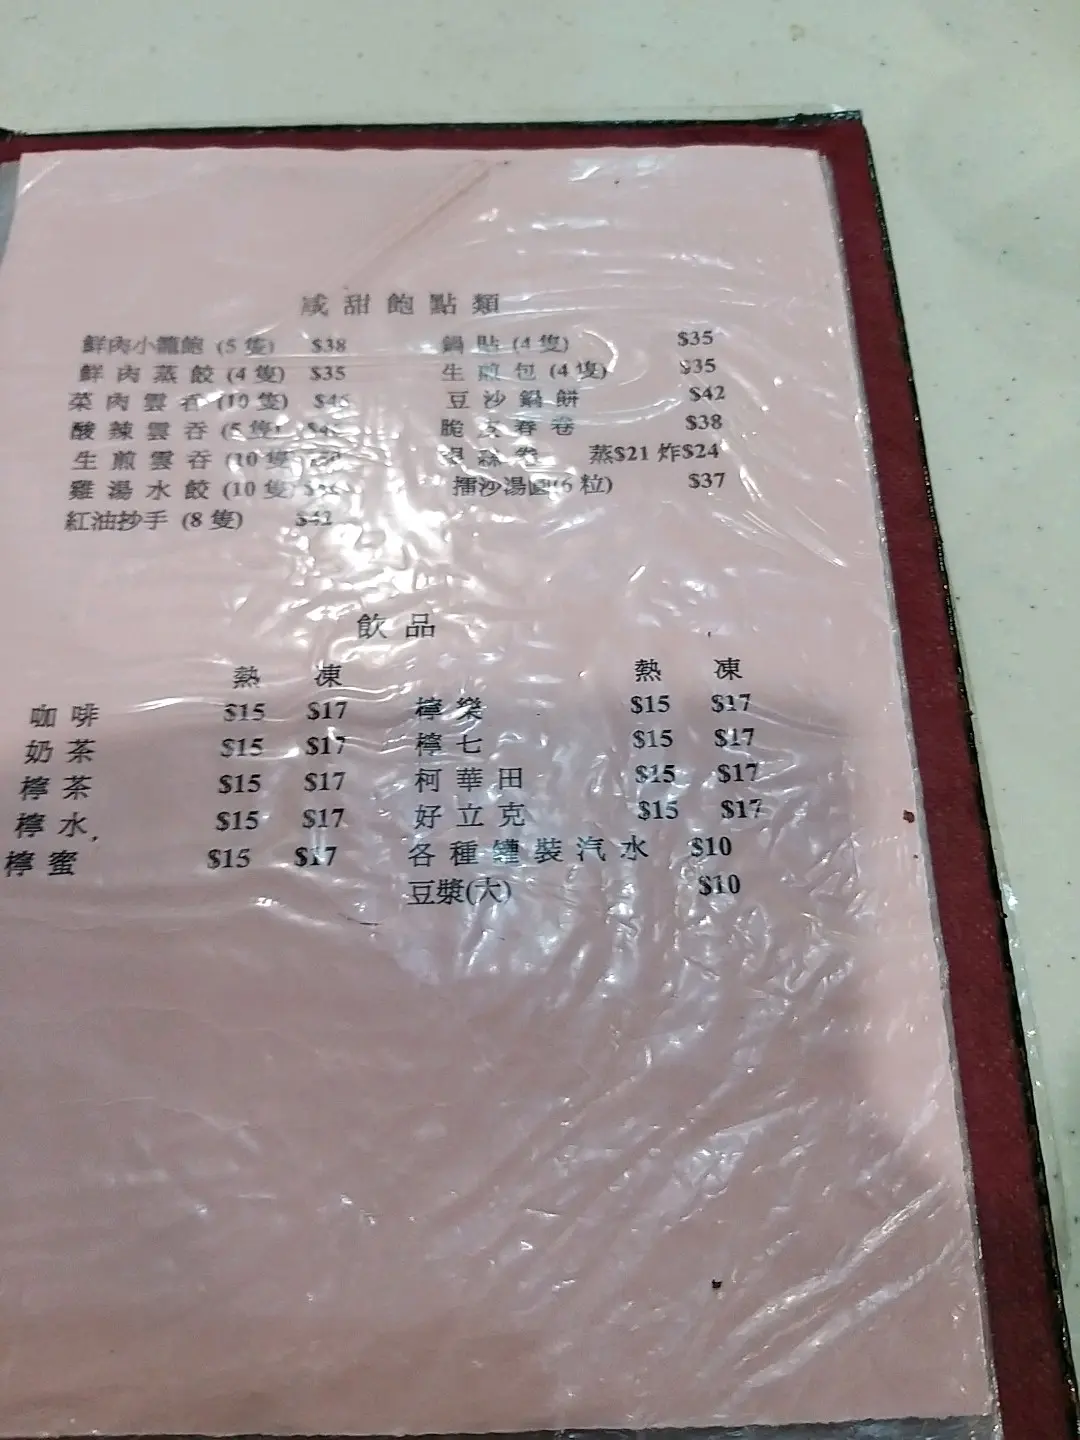 咸甜飽點類
鮮肉小籠飽 (5 隻) $38
鮮肉蒸餃 (4 隻) $35
菜肉雲吞 (10 隻)
酸辣雲吞 (5 隻)
生煎雲吞 (10 隻
雞湯水餃 (10 隻)
紅油抄手 (8 隻) $42
鍋貼 (4 隻) $35
生煎包 (4 隻) $35
豆沙鍋餅 $42
脆皮春卷 $38
銀絲卷 蒸$21 炸$24
擂沙湯圓(6 粒) $37
飲品
熱 凍
咖啡 $15 $17
奶茶 $15 $17
檸茶 $15 $17
檸水 $15 $17
檸蜜 $15 $17
熱 凍
檸樂 $15 $17
檸七 $15 $17
柯華田 $15 $17
好立克 $15 $17
各種罐裝汽水 $10
豆漿(大) $10